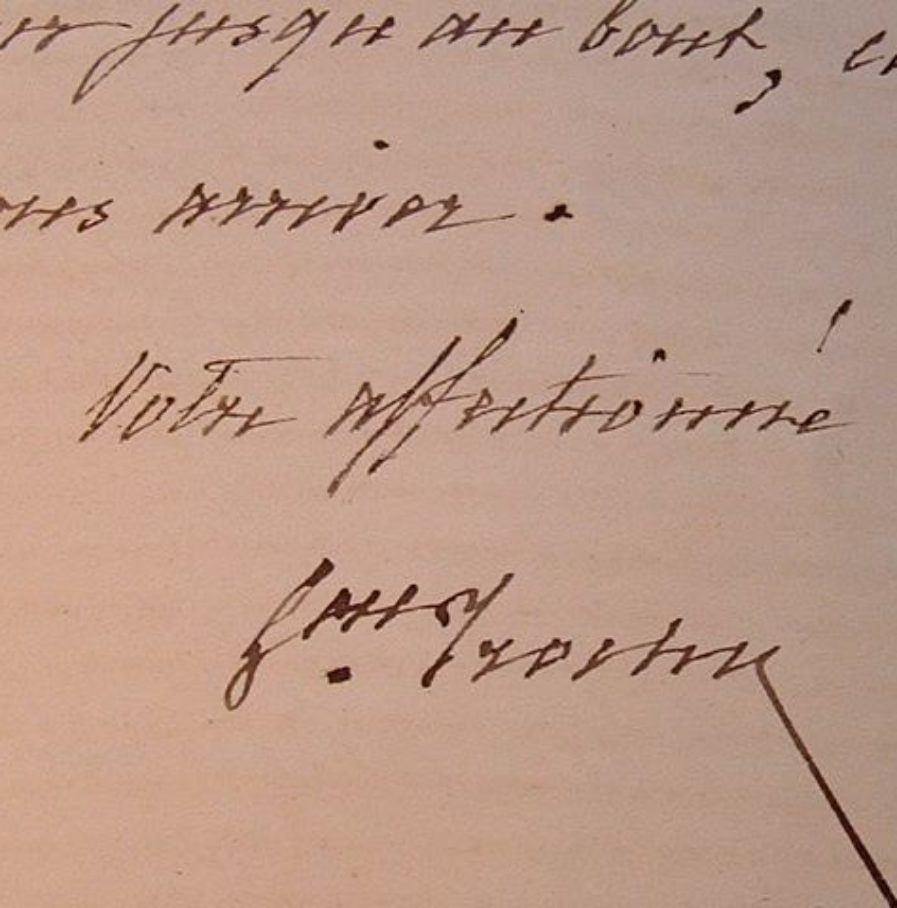 jusqu au bout,
arriver.
Votre affectionné
Trochu